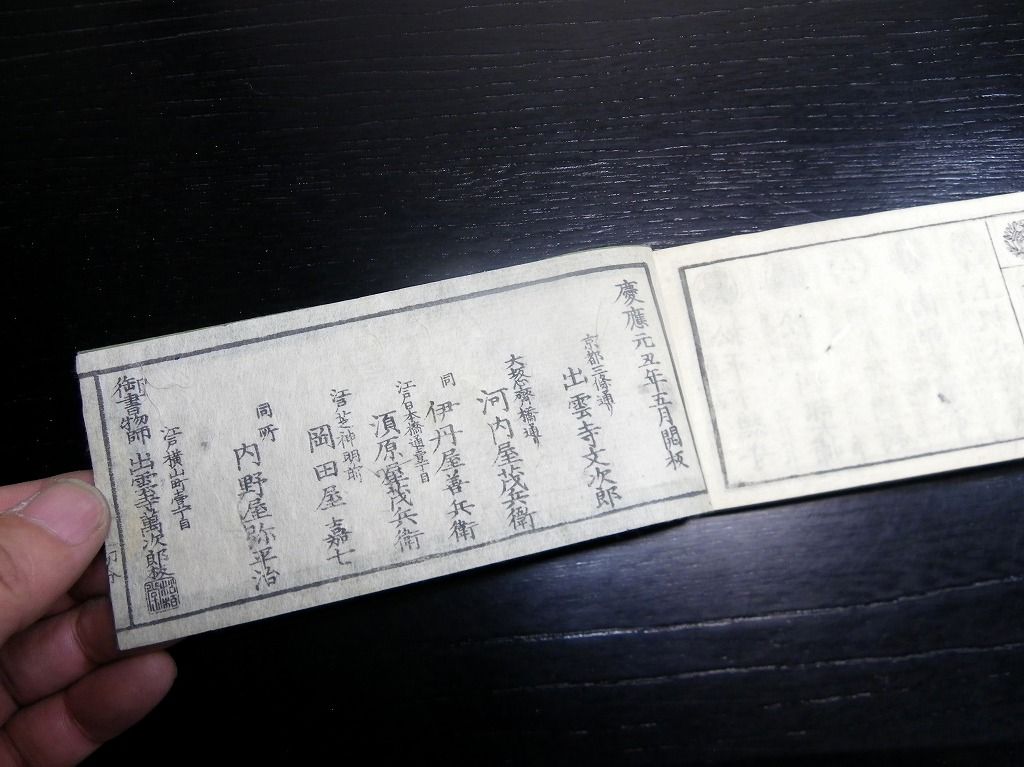 慶應元丑年五月開板
京都三條通り
出雲寺文次郎
大坂心齊橋通り
河内屋茂兵衛
同
伊丹屋善兵衛
江戸日本橋通壹丁目
須原屋茂兵衛
江戸芝神明前
岡田屋嘉七
同町
内野屋弥平治
江戸横山町壹丁目
御書物師 出雲寺萬次郎板